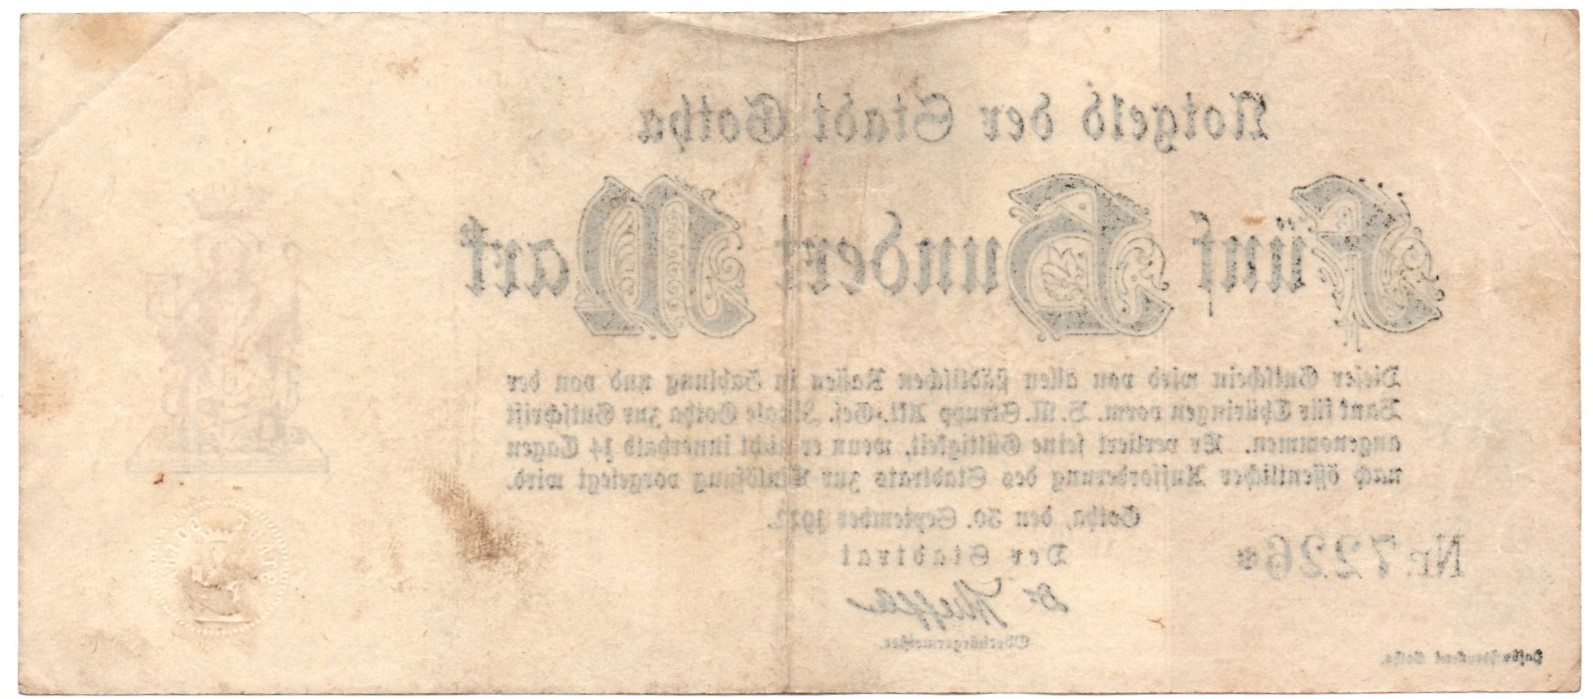 Notgeld der Stadt Gotha
Fünf Hundert Mark
Dieser Gutschein wird von allen städtischen Kassen in Zahlung und von der
Bank für Thüringen vorm. B. M. Strupp Akt.-Ges. Filiale Gotha zur Gutschrift
angenommen. Er verliert seine Gültigkeit, wenn er nicht innerhalb 14 Tagen
nach öffentlicher Aufforderung des Stadtrats zur Einlösung vorgelegt wird.
Gotha, den 30. September 1922.
Der Stadtrat
Dr.
Oberbürgermeister.
Nr. 7226*
Gotha.